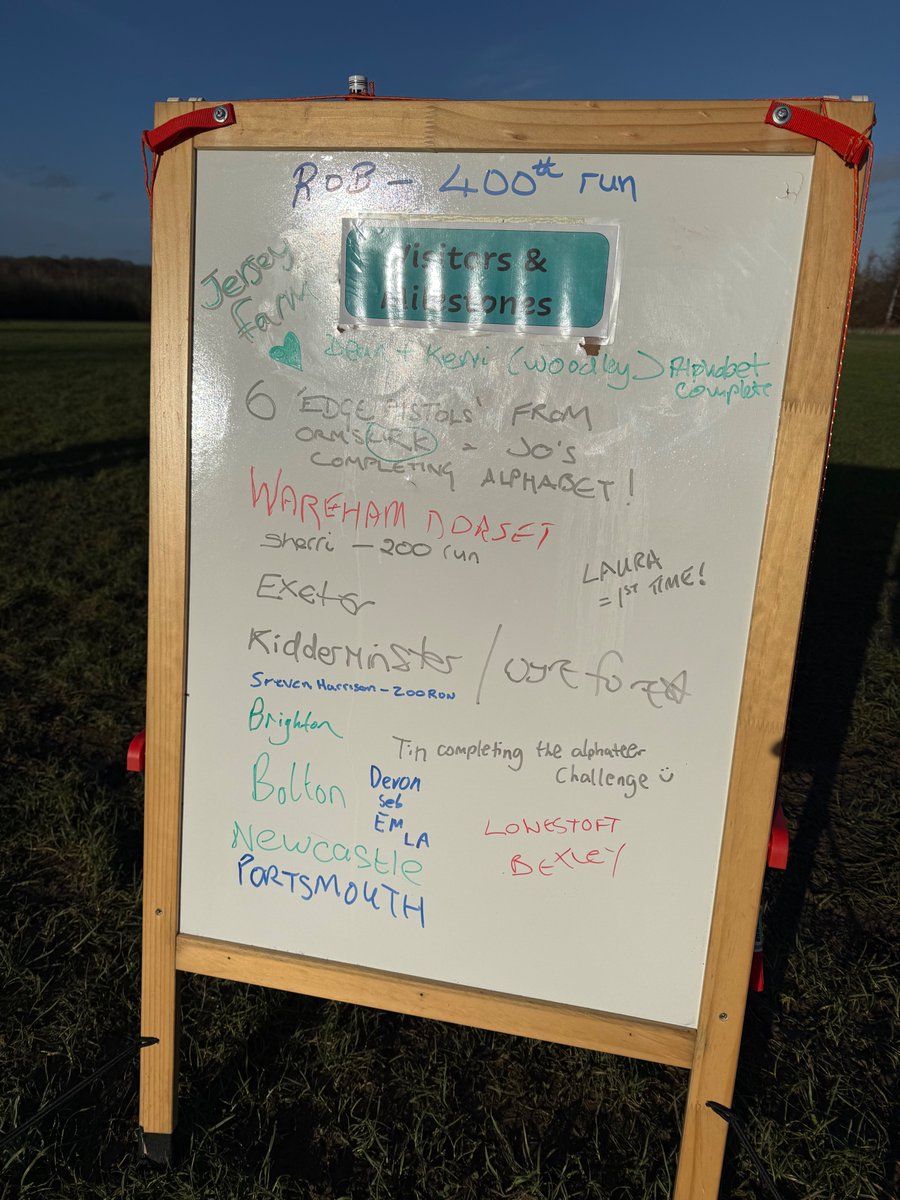 ROB - 400th run
Visitors &
Milestones
Jersey
Farm
Dean + Kerri (Woodley) Alphabet
complete
6 'EDGE PISTOLS' FROM
ORMSKIRK = JO'S
COMPLETING ALPHABET!
WAREHAM DORSET
Sherri - 200 run
LAURA
= 1ST TIME!
Exeter
Kidderminster / Wyre forest
Steven Harrison - 200 RUN
Brighton
Tin completing the alphateer
Challenge
Bolton
Devon
Seb
EM
LA
LOWESTOFT
BEXLEY
Newcastle
PORTSMOUTH